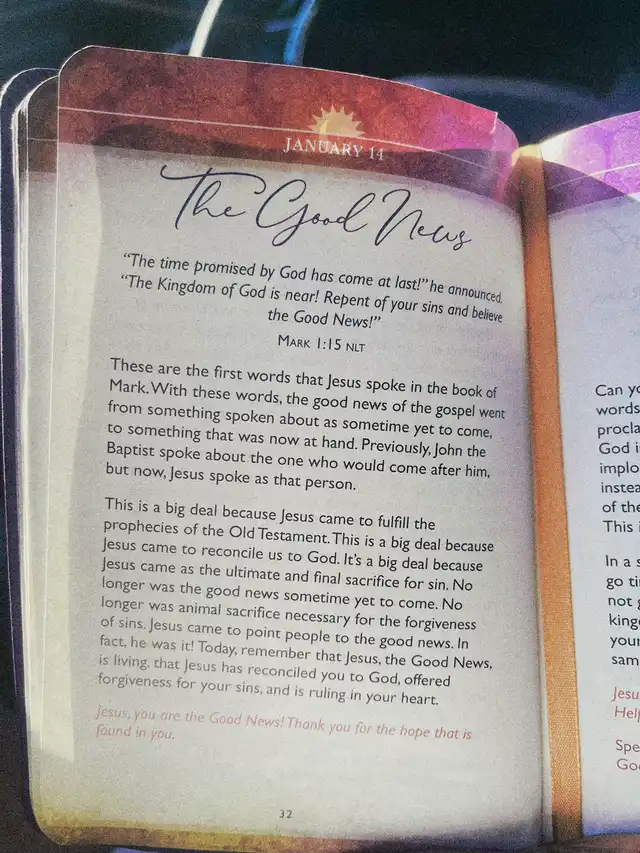 JANUARY 14
The Good News
"The time promised by God has come at last!" he announced.
"The Kingdom of God is near! Repent of your sins and believe
the Good News!"
MARK 1:15 NLT
These are the first words that Jesus spoke in the book of
Mark. With these words, the good news of the gospel went
from something spoken about as sometime yet to come,
to something that was now at hand. Previously, John the
Baptist spoke about the one who would come after him,
but now, Jesus spoke as that person.
This is a big deal because Jesus came to fulfill the
prophecies of the Old Testament. This is a big deal because
Jesus came to reconcile us to God. It's a big deal because
Jesus came as the ultimate and final sacrifice for sin. No
longer was the good news sometime yet to come. No
longer was animal sacrifice necessary for the forgiveness
of sins. Jesus came to point people to the good news. In
fact, he was it! Today, remember that Jesus, the Good News,
is living, that Jesus has reconciled you to God, offered
forgiveness for your sins, and is ruling in your heart.
Jesus, you are the Good News! Thank you for the hope that is
found in you.
32
Can
words
God
of the
This
In a
go
not
your